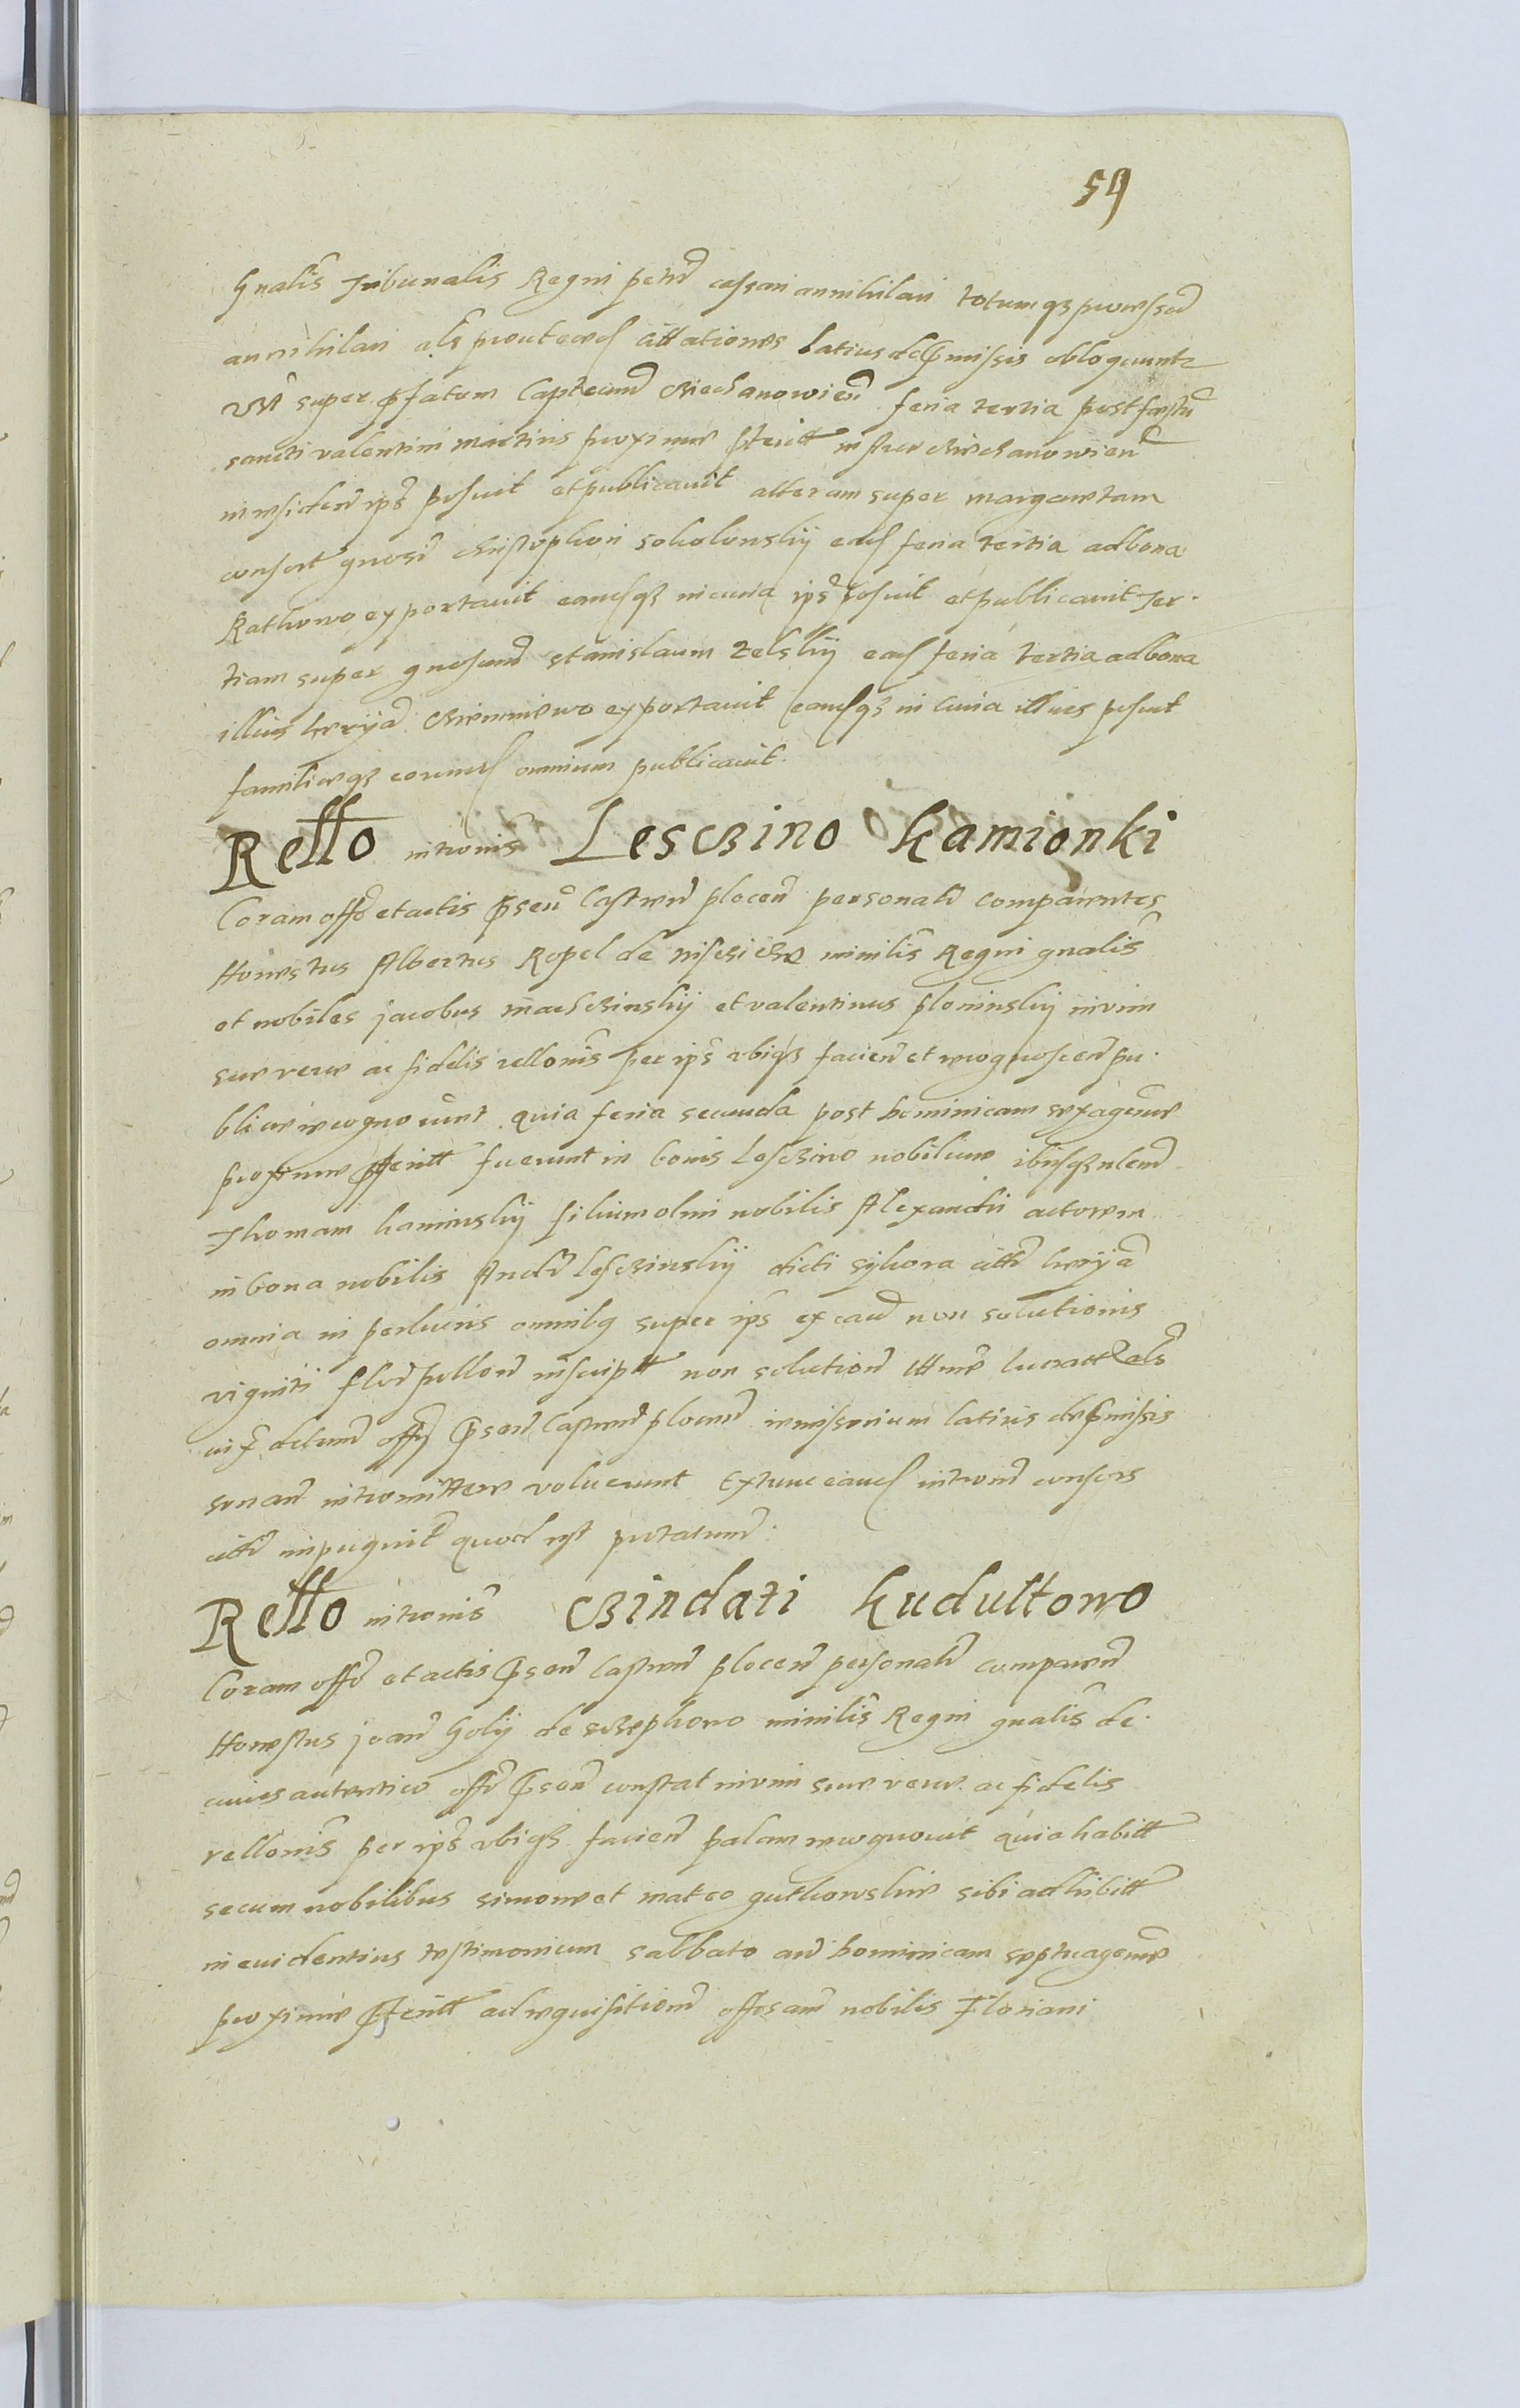 59
Gnalis Tribunalis Regni petn cassari annihilari totumqz processu
annihilari als prout eaed cittationes latius de pmissis obloquuntr
Vna super pfatum Capteum Ciechanowien feria tertia post festu
sancti valentini martiris proxime pterit in Arce ciechanowien
in residen ips posuit et publicauit alteram super margaretam
consort gnosi christophori sokolowskÿ ead feria tertia ad bona
Rathowo exportauit eamdqz in curia ips posuit et publicauit Ter-
tiam super gnosum stanislaum zelskÿ ead feria tertia ad bona
illius herÿa Chrominiewo exportauit eamdqz in curia illius posuit
familieqz eorumd omnium publicauit.
Rello intronis Lesczino Kamionki
Coram offo et actis psen Castren plocen personalr comparentes
Honestus Albertus Ropel de nisczicze minilis Regni gnalis
et nobiles jacobus machczinskÿ et valentinus ploninskÿ in vim
sue vere ac fidelis rellonis per ips vbiqz facien et recognoscen pu-
blice recogno runt quia feria secunda post dominicam sexagesime
proxime pterit fuerunt in bonis Lesczino nobilium ibidqz nlem
Thomam kaminskÿ filium olim nobilis Alexandri actorem
in bona nobilis Andr Lesczinskÿ dicti sykora citti herÿa
omnia in perlucris omnibq super ips ex cau non solutionis
viginti flor pollon inscript non solution ttme lucratt als
iux decum offÿ psen Castren plocen remissorium latius de pmissis
sonan intromittere voluerunt Extunc eand intron consors
citti inpugnit quod est protatum.
Rello intronis Czindati kudultowo
Coram offo et actis psen Castren plocen personalr comparen
Honestus joan Golÿ de Czephowo minilis Regni gnalis de
cuius autentico offo psen constat in vim sue vere ac fidelis
rellonis per ips vbiqz facien palam recognouit quia habitt
secum nobilibus simone et mateo gutkowskie sibi adhibitt
in euidentius testimonium sabbato an dominicam septuagesime
proxime pterit ad requisitionem offosam nobilis Floriani